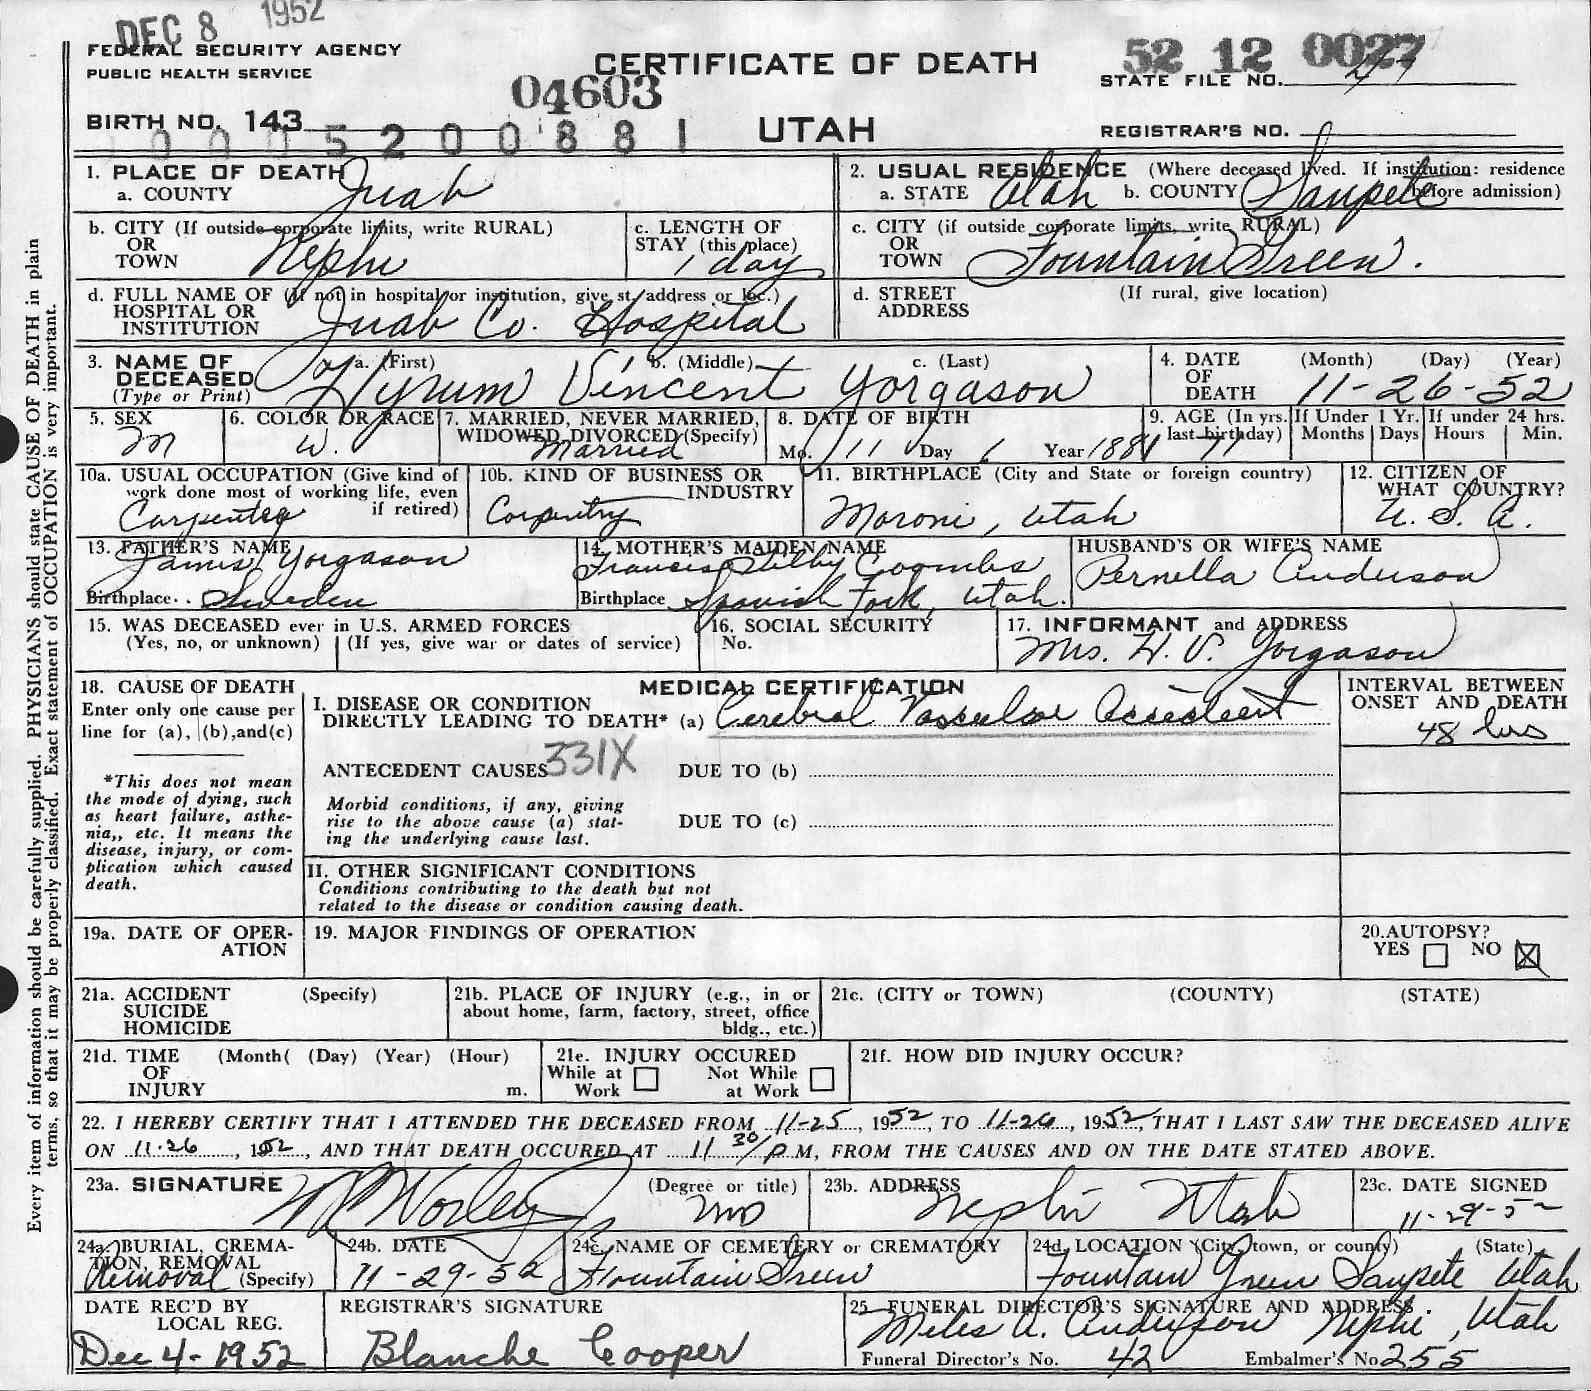 DEC 8 1952
FEDERAL SECURITY AGENCY
PUBLIC HEALTH SERVICE
CERTIFICATE OF DEATH
52 12 0027
STATE FILE NO.
04603
BIRTH NO. 143
0005200881
UTAH
REGISTRAR'S NO.
1. PLACE OF DEATH
a. COUNTY Juab
2. USUAL RESIDENCE (Where deceased lived. If institution: residence before admission)
a. STATE Utah b. COUNTY Sanpete
b. CITY (If outside corporate limits, write RURAL)
OR
TOWN Nephi
c. LENGTH OF
STAY (this place)
1 day
c. CITY (if outside corporate limits, write RURAL)
OR
TOWN Fountain Green.
d. FULL NAME OF (If not in hospital or institution, give st. address or loc.)
HOSPITAL OR
INSTITUTION Juab Co. Hospital
d. STREET
ADDRESS
(If rural, give location)
3. NAME OF
DECEASED
(Type or Print)
a. (First) b. (Middle) c. (Last)
Hyrum Vincent Yorgason
4. DATE
OF
DEATH
(Month) (Day) (Year)
11-26-52
5. SEX
M
6. COLOR OR RACE
W.
7. MARRIED, NEVER MARRIED,
WIDOWED, DIVORCED (Specify)
Married
8. DATE OF BIRTH
Mo. 11 Day 6 Year 1881
9. AGE (In yrs. last birthday)
71
If Under 1 Yr.
Months Days
If under 24 hrs.
Hours Min.
10a. USUAL OCCUPATION (Give kind of
work done most of working life, even
if retired)
Carpenter
10b. KIND OF BUSINESS OR
INDUSTRY
Carpentry
11. BIRTHPLACE (City and State or foreign country)
Moroni, Utah
12. CITIZEN OF
WHAT COUNTRY?
U. S. A.
13. FATHER'S NAME
James Yorgason
Birthplace.. Sweden
14. MOTHER'S MAIDEN NAME
Francis Coombs
Birthplace Spanish Fork, Utah.
HUSBAND'S OR WIFE'S NAME
Pernella Anderson
15. WAS DECEASED ever in U.S. ARMED FORCES
(Yes, no, or unknown) (If yes, give war or dates of service)
16. SOCIAL SECURITY
No.
17. INFORMANT and ADDRESS
Mrs. H. V. Yorgason
18. CAUSE OF DEATH
Enter only one cause per
line for (a), (b), and (c)
*This does not mean
the mode of dying, such
as heart failure, asthe-
nia,, etc. It means the
disease, injury, or com-
plication which caused
death.
MEDICAL CERTIFICATION
I. DISEASE OR CONDITION
DIRECTLY LEADING TO DEATH* (a) Cerebral Vascular Accident
INTERVAL BETWEEN
ONSET AND DEATH
48 hrs
ANTECEDENT CAUSES 331X DUE TO (b)
Morbid conditions, if any, giving
rise to the above cause (a) stat-
ing the underlying cause last.
DUE TO (c)
II. OTHER SIGNIFICANT CONDITIONS
Conditions contributing to the death but not
related to the disease or condition causing death.
19a. DATE OF OPER-
ATION
19. MAJOR FINDINGS OF OPERATION
20. AUTOPSY?
YES NO X
21a. ACCIDENT (Specify)
SUICIDE
HOMICIDE
21b. PLACE OF INJURY (e.g., in or
about home, farm, factory, street, office
bldg., etc.)
21c. (CITY or TOWN) (COUNTY) (STATE)
21d. TIME (Month( (Day) (Year) (Hour)
OF
INJURY m.
21e. INJURY OCCURED
While at Work Not While at Work
21f. HOW DID INJURY OCCUR?
22. I HEREBY CERTIFY THAT I ATTENDED THE DECEASED FROM 11-25, 1952, TO 11-26, 1952, THAT I LAST SAW THE DECEASED ALIVE
ON 11-26, 1952, AND THAT DEATH OCCURED AT 11 30/P M, FROM THE CAUSES AND ON THE DATE STATED ABOVE.
23a. SIGNATURE (Degree or title)
Worley MD
23b. ADDRESS
Nephi Utah
23c. DATE SIGNED
11-29-52
24a. BURIAL, CREMA-
TION, REMOVAL
Removal (Specify)
24b. DATE
11-29-52
24c. NAME OF CEMETERY or CREMATORY
Fountain Green
24d. LOCATION (City, town, or county) (State)
Fountain Green Sanpete Utah
DATE REC'D BY
LOCAL REG.
Dec 4-1952
REGISTRAR'S SIGNATURE
Blanche Cooper
25. FUNERAL DIRECTOR'S SIGNATURE AND ADDRESS
Miles A. Anderson Nephi, Utah
Funeral Director's No. 42 Embalmer's No 255
Every item of information should be carefully supplied. PHYSICIANS should state CAUSE OF DEATH in plain
terms, so that it may be properly classified. Exact statement of OCCUPATION is very important.